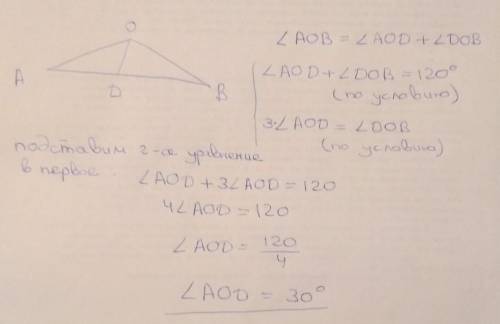 O
A
D
B
∠AOB = ∠AOD + ∠DOB
∠AOD + ∠DOB = 120°
(по условию)
3·∠AOD = ∠DOB
(по условию)
подставим 2-ое уравнение
в первое.
∠AOD + 3∠AOD = 120
4∠AOD = 120
∠AOD = 120/4
∠AOD = 30°